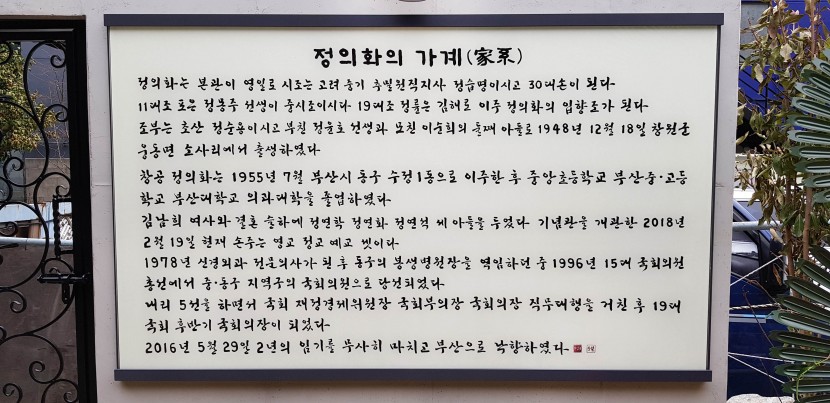 정의화의 가계(家系)
정의화는 본관이 영일로 시조는 고려 중기 추밀원직지사 정습명이시고 30대손이 된다
11대조 포은 정몽주 선생이 중시조이시다 19대조 정룡은 김해로 이주 정의화의 입향조가 된다
조부는 초산 정순용이시고 부친 정윤호 선생과 모친 이순희의 둘째 아들로 1948년 12월 18일 창원군
웅동면 소사리에서 출생하였다
창공 정의화는 1955년 7월 부산시 동구 수정1동으로 이주한 후 중앙초등학교 부산중·고등
학교 부산대학교 의과대학을 졸업하였다
김남희 여사와 결혼 슬하에 정연학 정연화 정연석 세 아들을 두었다 기념관을 개관한 2018년
2월 19일 현재 손주는 영교 정교 예교 셋이다
1978년 신경외과 전문의사가 된 후 동구의 봉생병원장을 역임하던 중 1996년 15대 국회의원
총선에서 중·동구 지역구의 국회의원으로 당선되었다
내리 5선을 하면서 국회 재정경제위원장 국회부의장 국회의장 직무대행을 거친 후 19대
국회 후반기 국회의장이 되었다
2016년 5월 29일 2년의 임기를 무사히 마치고 부산으로 낙향하였다